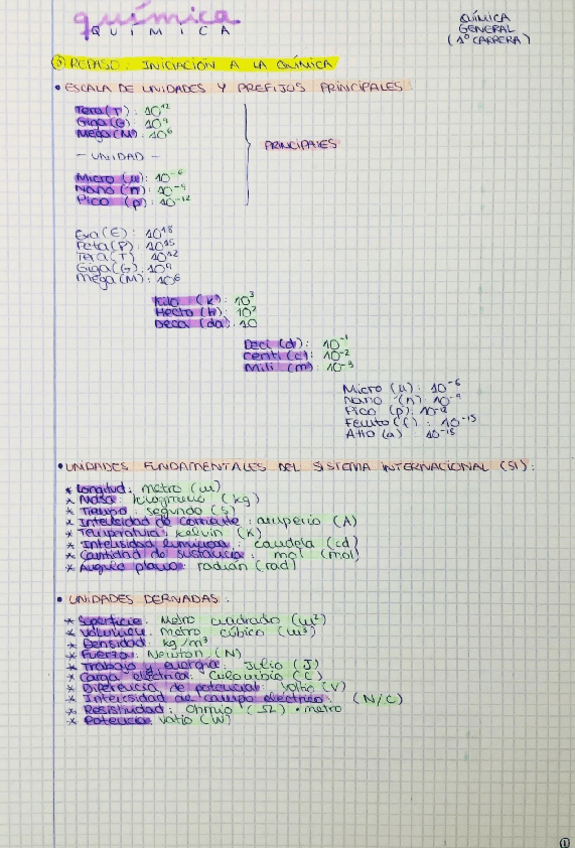 química
QUÍMICA
QUÍMICA
GENERAL
(1º CARRERA)
⓪ REPASO: INICIACIÓN A LA QUÍMICA
• ESCALA DE UNIDADES Y PREFIJOS PRINCIPALES
Tera (T): 10¹²
Giga (G): 10⁹
Mega (M): 10⁶
- UNIDAD -
PRINCIPALES
Micro (μ): 10⁻⁶
Nano (n): 10⁻⁹
Pico (p): 10⁻¹²
Exa (E): 10¹⁸
Peta (P): 10¹⁵
Tera (T): 10¹²
Giga (G): 10⁹
Mega (M): 10⁶
Kilo (k): 10³
Hecto (h): 10²
Deca (da): 10
Deci (d): 10⁻¹
Centi (c): 10⁻²
Mili (m): 10⁻³
Micro (μ): 10⁻⁶
Nano (n): 10⁻⁹
Pico (p): 10⁻¹²
Femto (f): 10⁻¹⁵
Atto (a): 10⁻¹⁸
• UNIDADES FUNDAMENTALES DEL SISTEMA INTERNACIONAL (SI):
* Longitud: metro (m)
* Masa: kilogramo (kg)
* Tiempo: segundo (s)
* Intensidad de corriente: amperio (A)
* Temperatura: kelvin (K)
* Intensidad lumínica: candela (cd)
* Cantidad de sustancia: mol (mol)
* Ángulo plano: radián (rad)
• UNIDADES DERIVADAS:
* Superficie: Metro cuadrado (m²)
* Volumen: Metro cúbico (m³)
* Densidad: kg/m³
* Fuerza: Newton (N)
* Trabajo y energía: Julio (J)
* Carga eléctrica: Culombio (C)
* Diferencia de potencial: Voltio (V)
* Intensidad de campo eléctrico: (N/C)
* Resistividad: Ohmio (Ω) • metro
* Potencia: Vatio (W)
①